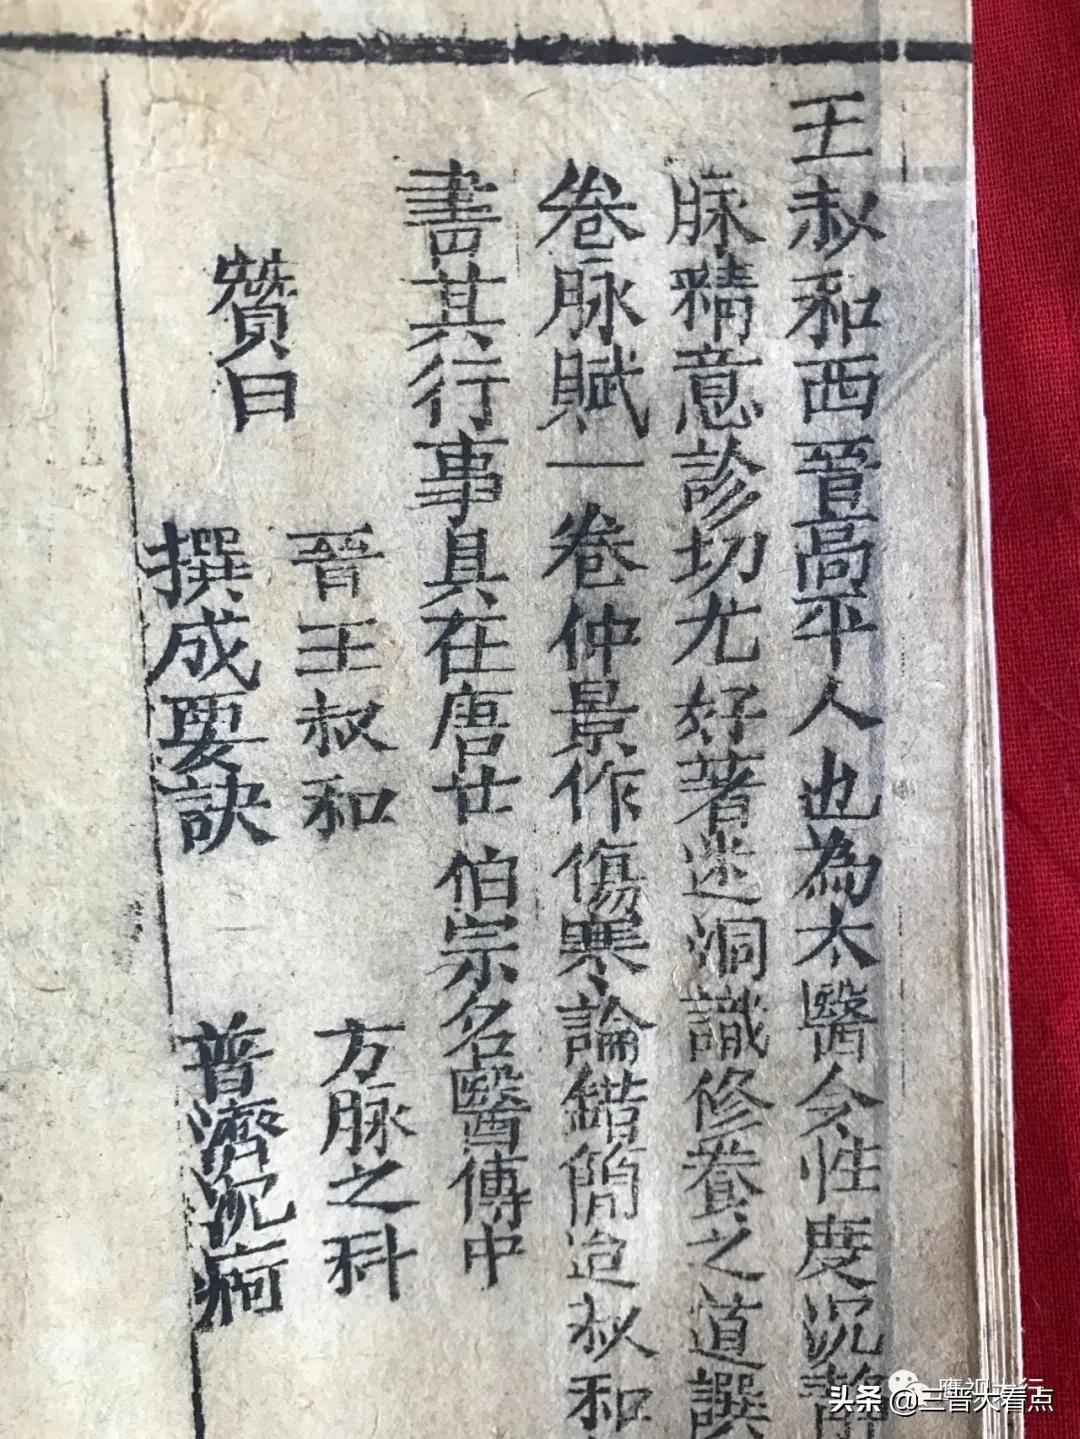 王叔和西晉高平人也為太醫令性度沉靜
脉精意診切尤好著述洞識修養之道譔
卷脉賦一卷仲景作傷寒論錯簡迨叔和
書其行事具在唐甘伯宗名醫傳中
贊曰
晉王叔和
方脉之科
撰成要訣
普濟沉痾
头条 @三普大看点